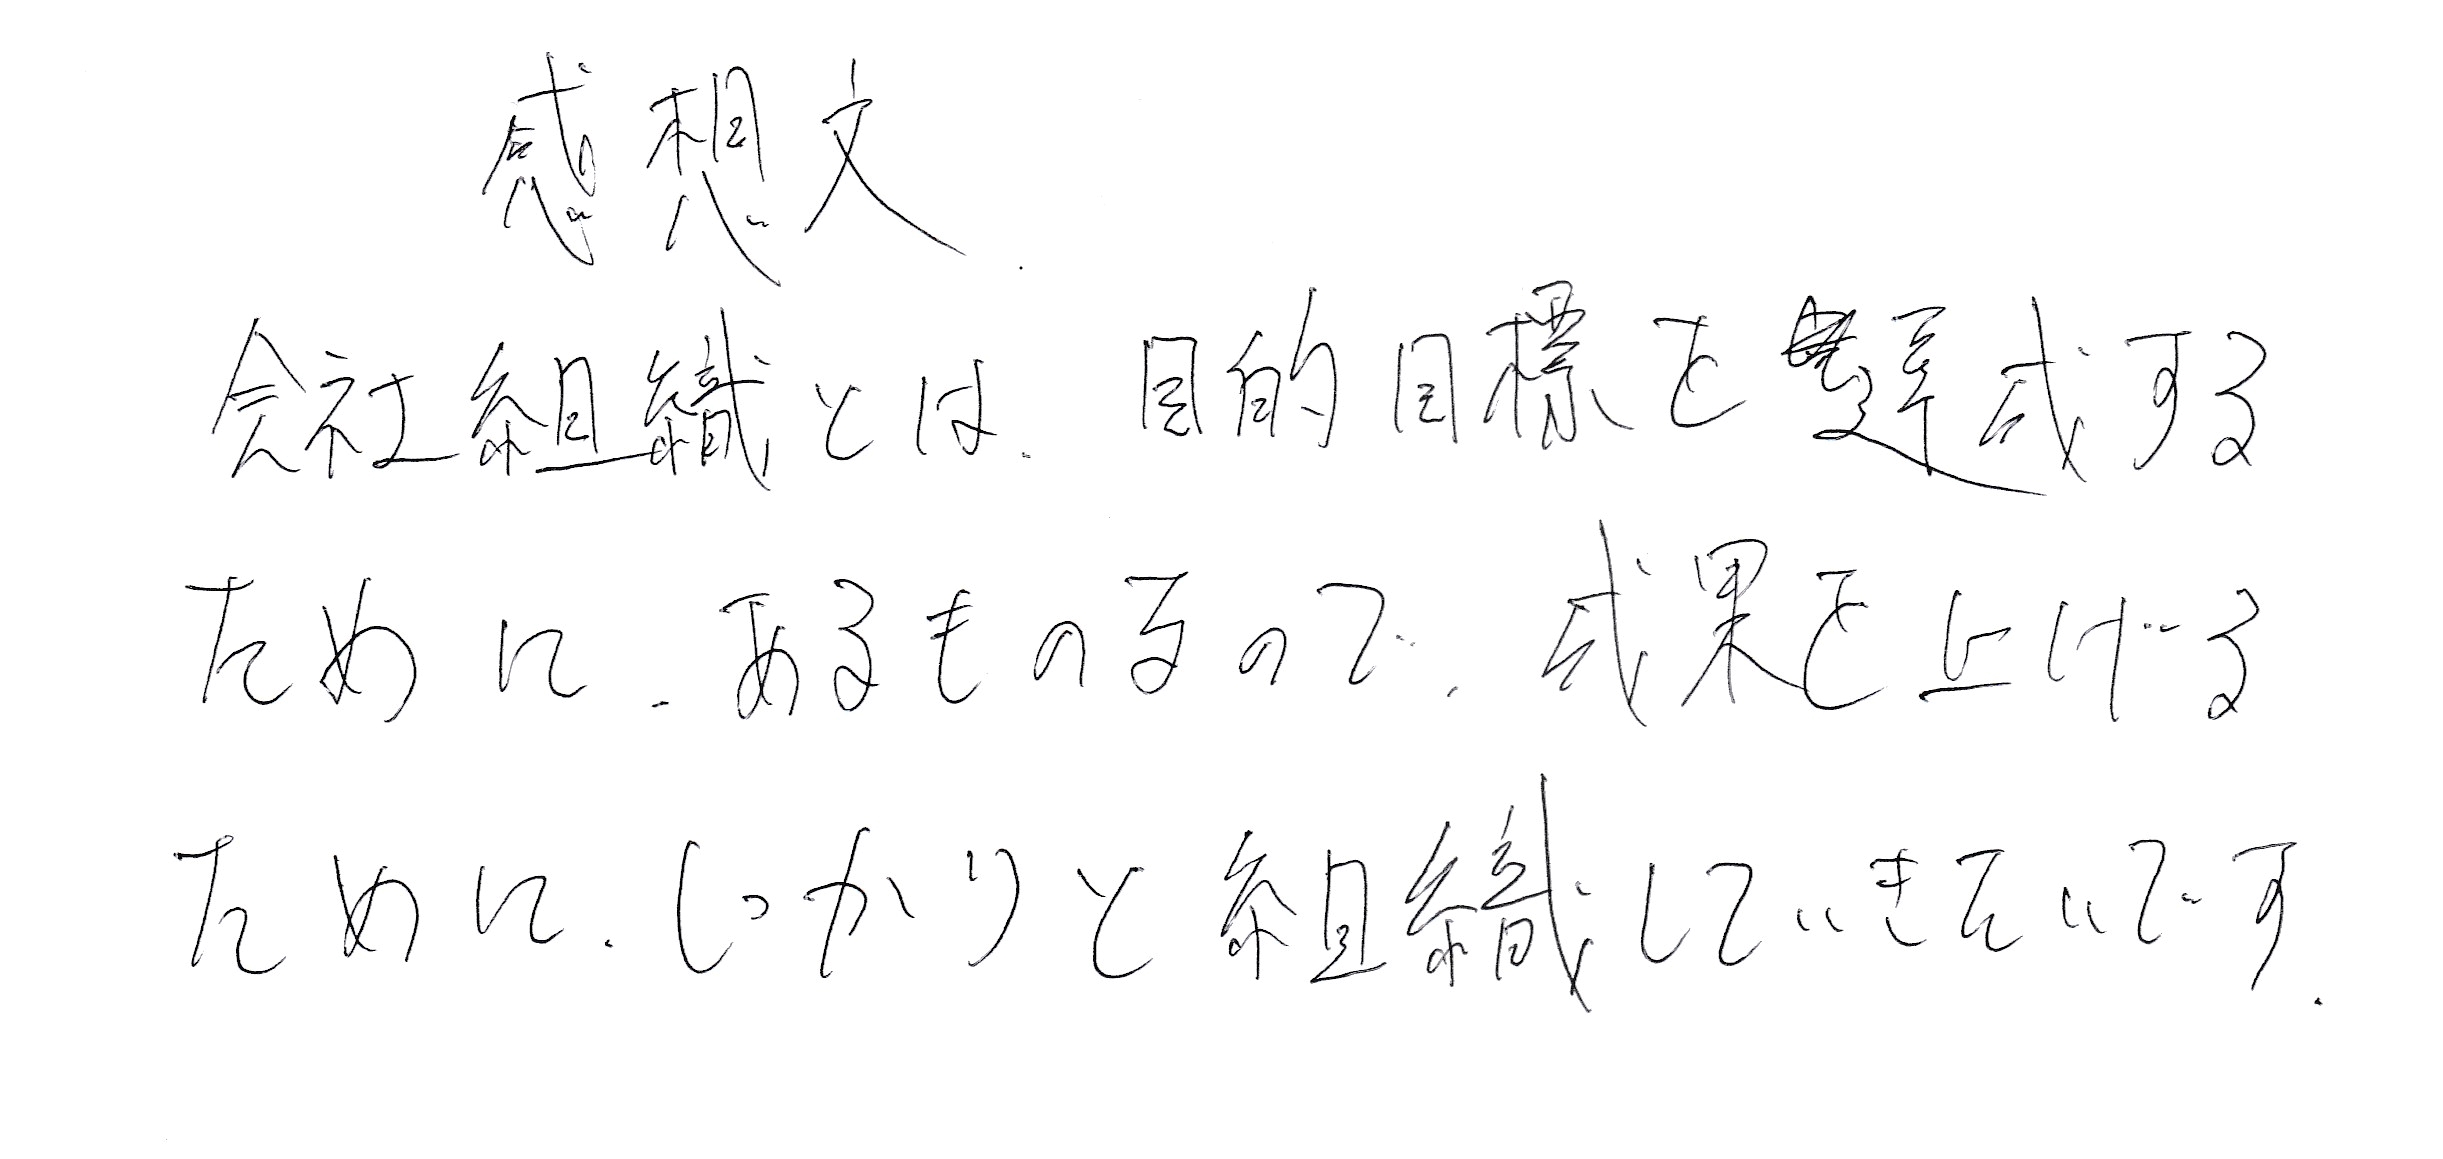 感想文
会社組織とは、目的目標を達成する
ために、あるものなので、成果を上げる
ために、しっかりと組織していきたいです。